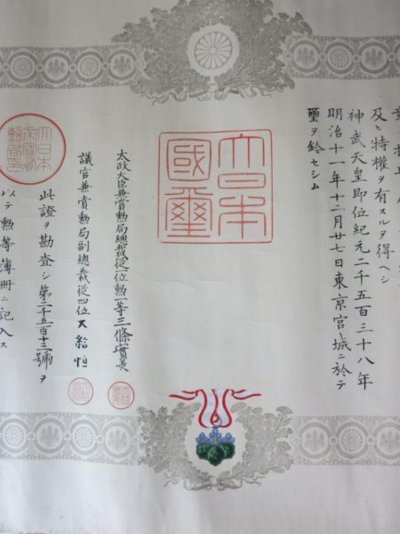 及ヒ特權ヲ有スルヲ得ヘシ
神武天皇即位紀元二千五百三十八年
明治十一年十二月廿七日東京宮城ニ於テ
璽ヲ鈐セシム
大日本
國璽
太政大臣兼賞勲局總裁從一位勲一等三條實美
議官兼賞勲局副總裁從四位大給恒
此證ヲ勘査シ第二千五百十三號ヲ
以テ勲等簿冊ニ記入ス